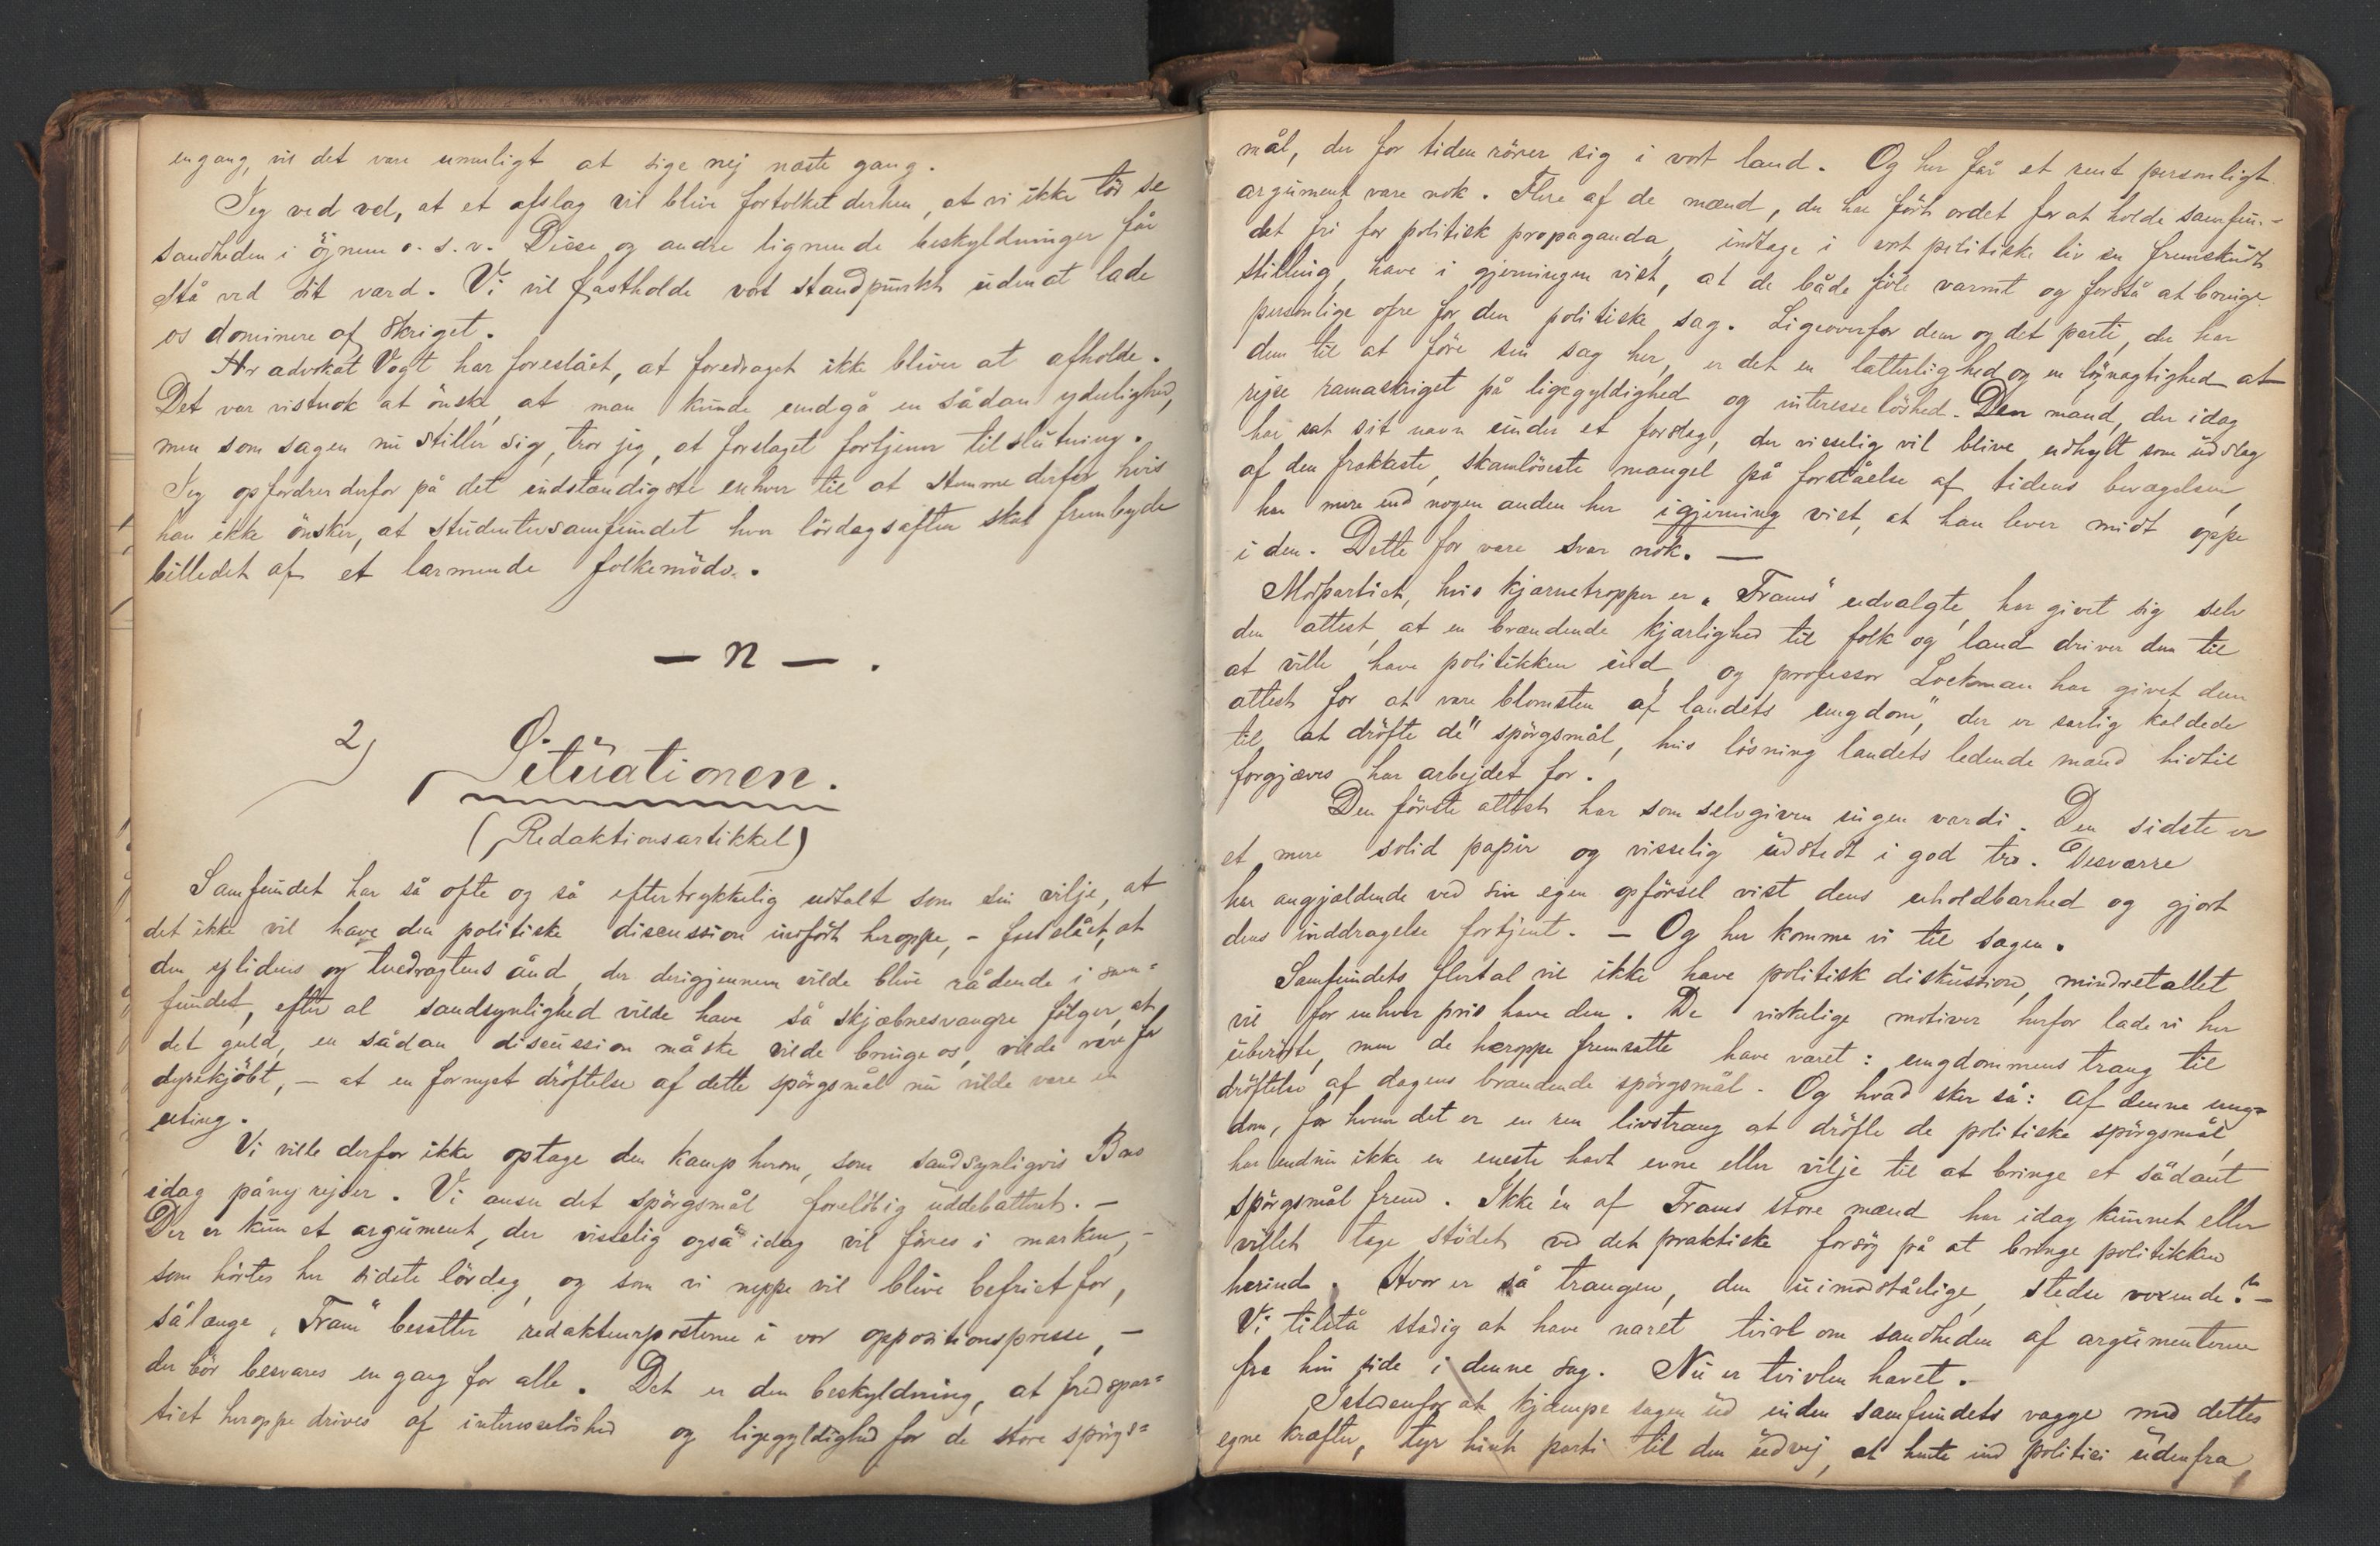 engang, vil det være umuligt at sige nej næste gang.
Jeg ved vel, at et afslag vil blive fortolket derhen, at vi ikke tör se
sandheden i öjnene o. s. v. Disse og andre lignende beskyldninger får
stå ved sit værd. Vi vil fastholde vort standpunkt uden at lade
os dominere af skriget.
Hr advokat Vogt har foreslået, at foredraget ikke bliver at afholde.
Det var vistnok at önske, at man kunde undgå en sådan yderlighed,
men som sagen nu stiller sig, tror jeg, at forslaget fortjener tilslutning.
Jeg opfordrer derfor på det indstændigste enhver til at stemme derfor, hvis
han ikke önsker, at studentersamfundet hver lördagsaften skal frembyde
billedet af et larmende folkemöde.
— n — .
2) Situationen.
(Redaktionsartikkel)
Samfundet har så ofte og så eftertrykkelig udtalt som sin vilje, at
det ikke vil have den politiske discussion indfört heroppe, - fastslået, at
den splidens og tvedragtens ånd, der derigjennem vilde blive rådende i sam=
fundet, efter al sandsynlighed vilde have så skjæbnesvangre fölger, at
det guld, en sådan discussion måske vilde bringe os, vilde være for
dyrekjöbt, — at en fornyet dröftelse af dette spörgsmål nu vilde være en
uting.
Vi ville derfor ikke optage den kamp herom, som sandsynligvis Bas
idag påny rejser. Vi anser det spörgsmål forelöbig uddebatteret. —
Der er kun et argument, der visselig også idag vil föres i marken, -
som hörtes her sidste lördag, og som vi neppe vil blive befriet for,
sålænge „Fram" besætter redakteurposterne i vor oppositionspresse, —
der bör besvares en gang for alle. Det er den beskyldning, at fredspar=
tiet heroppe drives af interesselöshed og ligegyldighed for de store spörgs=
mål, der for tiden rörer sig i vort land. Og her får et rent personligt
argument være nok. Flere af de mænd, der har fört ordet for at holde samfun-
det fri for politisk propaganda, indtage i vort politiske liv en fremskudt
stilling, have i gjerningen vist, at de både föle varmt og forstå at bringe
personlige ofre for den politiske sag. Ligeoverfor dem og det parti, der har
dem til at före sin sag her, er det en latterlighed og en lögnagtighed at
rejse ramaskriget på ligegyldighed og interesselöshed. Den mand, der idag
har sat sit navn under et forslag, der visselig vil blive udhylt som udslag
af den frækkeste, skamlöseste mangel på forståelse af tidens bevægelser,
har mere end nogen anden her i gjerning vist, at han lever midt oppe
i den. Dette får være svar nok. —
Modpartiet, hvis kjærnetropper er „Frams" udvalgte, har givet sig selv
den attest, at en brændende kjærlighed til folk og land driver dem til
at ville have politikken ind, og professor Lochman har givet dem
attest for at være blomsten af landets ungdom," der er særlig kaldede
til at dröfte de" spörgsmål, hvis lösning landets ledende mænd hidtil
forgjæves har arbejdet for.
Den förste attest har som selvgiven ingen værdi. Den sidste er
et mere solid papir og visselig udstedt i god tro. Desværre
har angjældende ved sin egen opförsel vist dens uholdbarhed og gjort
dens inddragelse fortjent. — Og her komme vi til sagen.
Samfundets flertal vil ikke have politisk diskussion, mindretallet
vil for enhver pris have den. De virkelige motiver herfor lade vi her
uberörte, men de heroppe fremsatte have været: ungdommens trang til
dröftelse af dagens brændende spörgsmål. Og hvad sker så: af denne ung=
dom, for hvem det er en ren livstrang at dröfte de politiske spörgsmål,
har endnu ikke en eneste havt evne eller vilje til at bringe et sådant
spörgsmål frem. Ikke én af Frams store mænd har idag kunnet eller
villet tage stödet ved det praktiske forsög på at bringe politikken
herind. Hvor er så trangen, den uimodståelige, stedse voxende? —
Vi tilstå stadig at have næret tvivl om sandheden af argumenterne
fra hin side i denne sag. Nu er tvivlen hævet.
Istedenfor at kjæmpe sagen ud inden samfundets vægge med dettes
egne kræfter, tyr hint parti til den udvej, at hente ind politici udenfra,